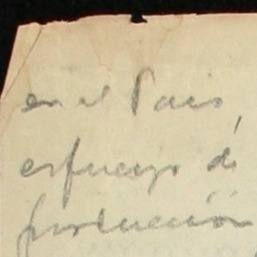 en el Pais,
esfuerzo de
producción